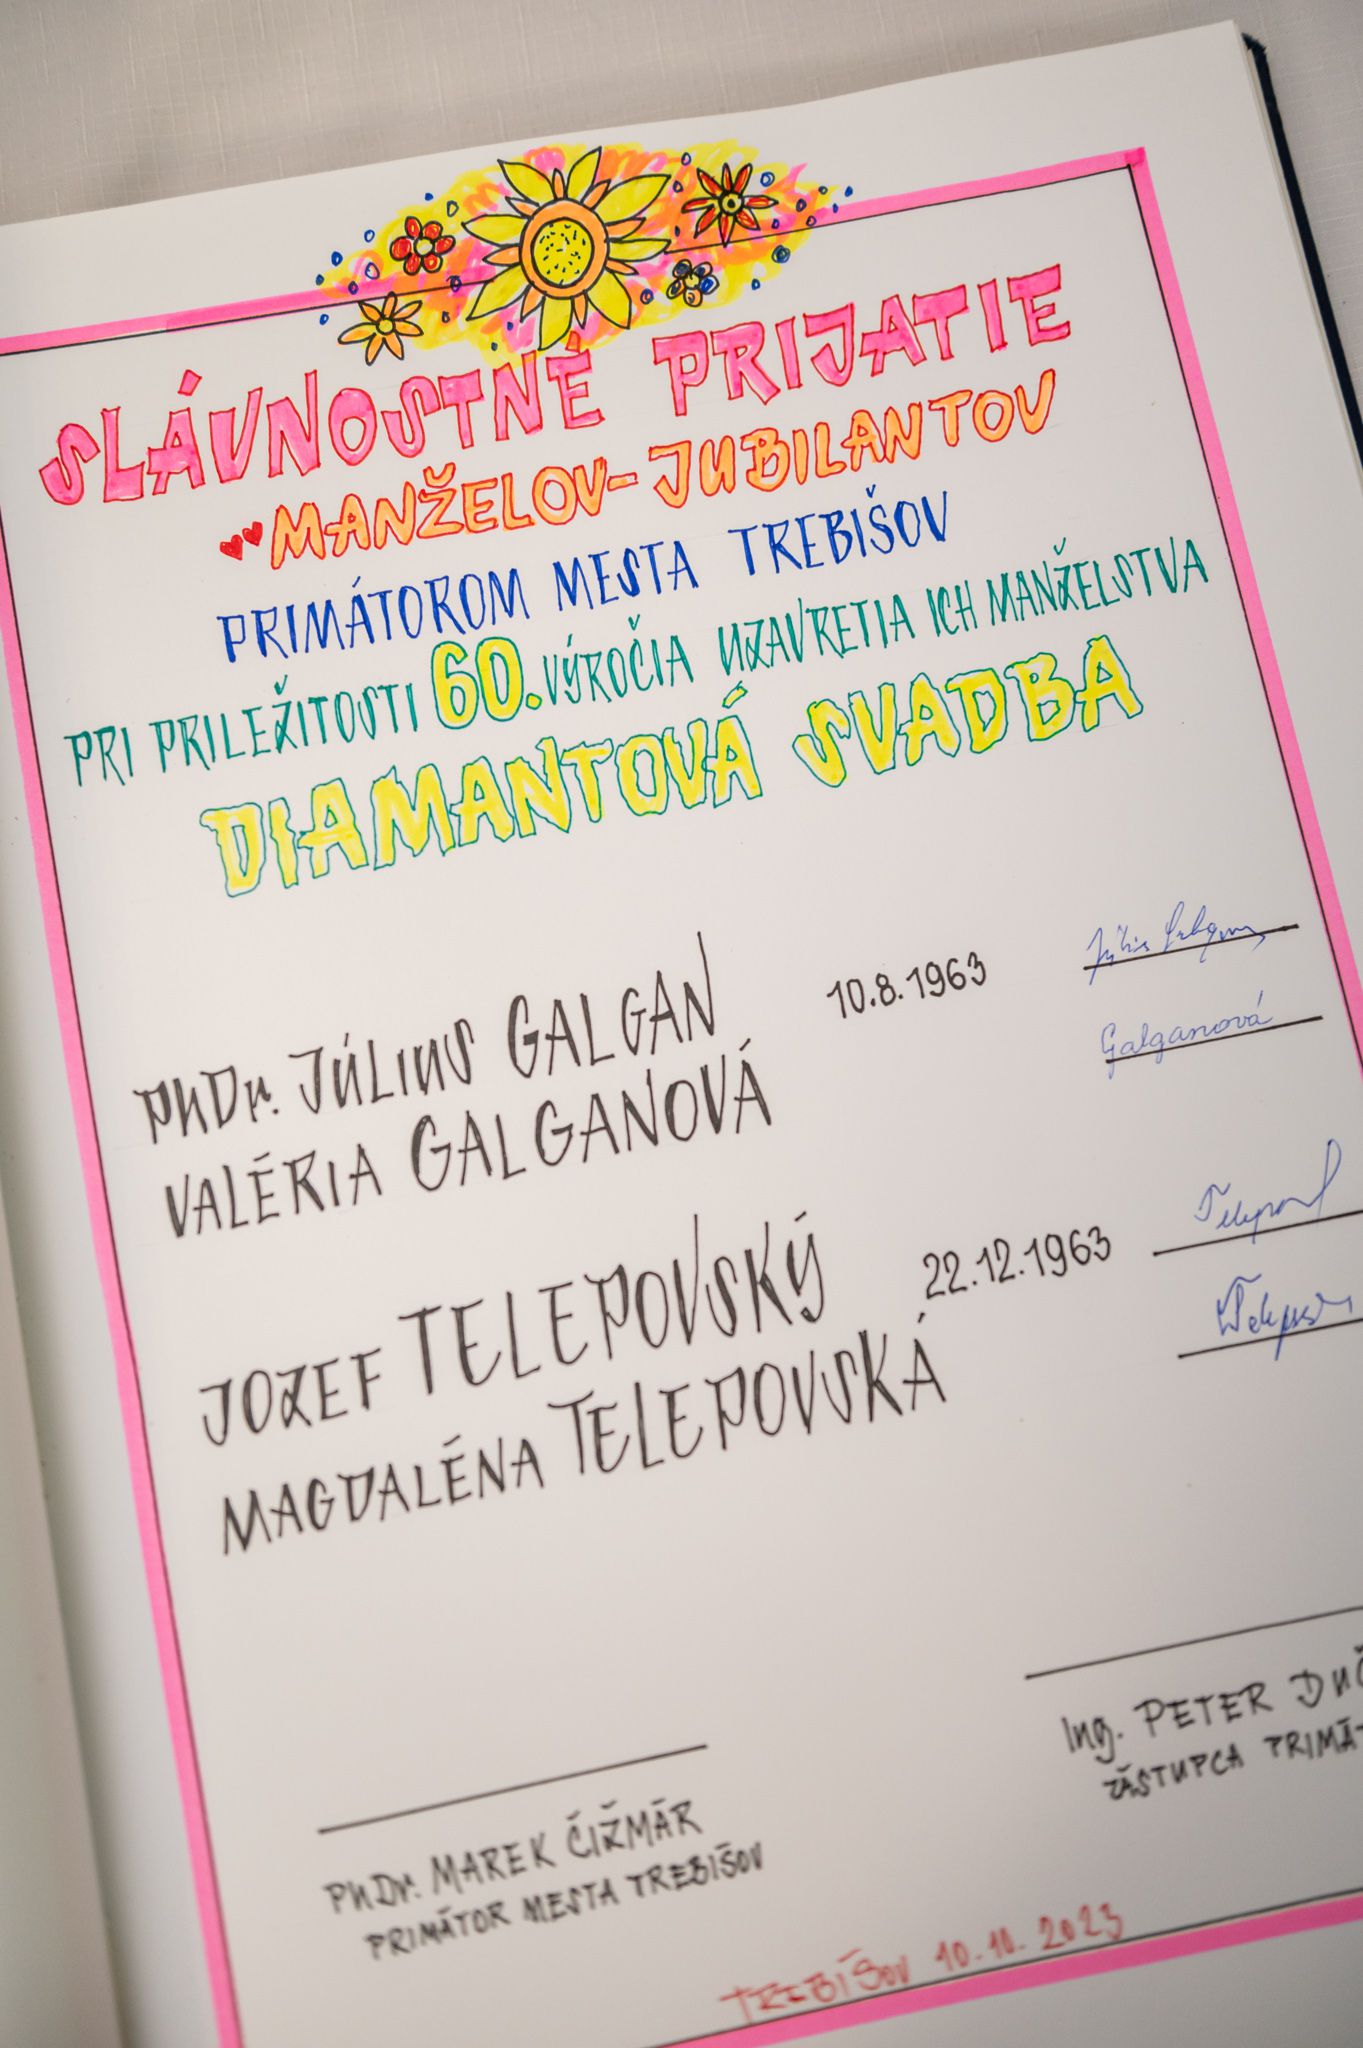 SLÁVNOSTNÉ PRIJATIE
MANŽELOV-JUBILANTOV
PRIMÁTOROM MESTA TREBIŠOV
PRI PRILEŽITOSTI 60. VÝROČIA UZAVRETIA ICH MANŽELSTVA
DIAMANTOVÁ SVADBA
PhDr. JÚLIUS GALGAN 10.8.1963
VALÉRIA GALGANOVÁ Galganová
JOZEF TELEPOVSKÝ 22.12.1963
MAGDALÉNA TELEPOVSKÁ
Ing. PETER
ZÁSTUPCA
PhDr. MAREK ČIŽMÁR
PRIMÁTOR MESTA TREBIŠOV
TREBIŠOV 10.10.2023